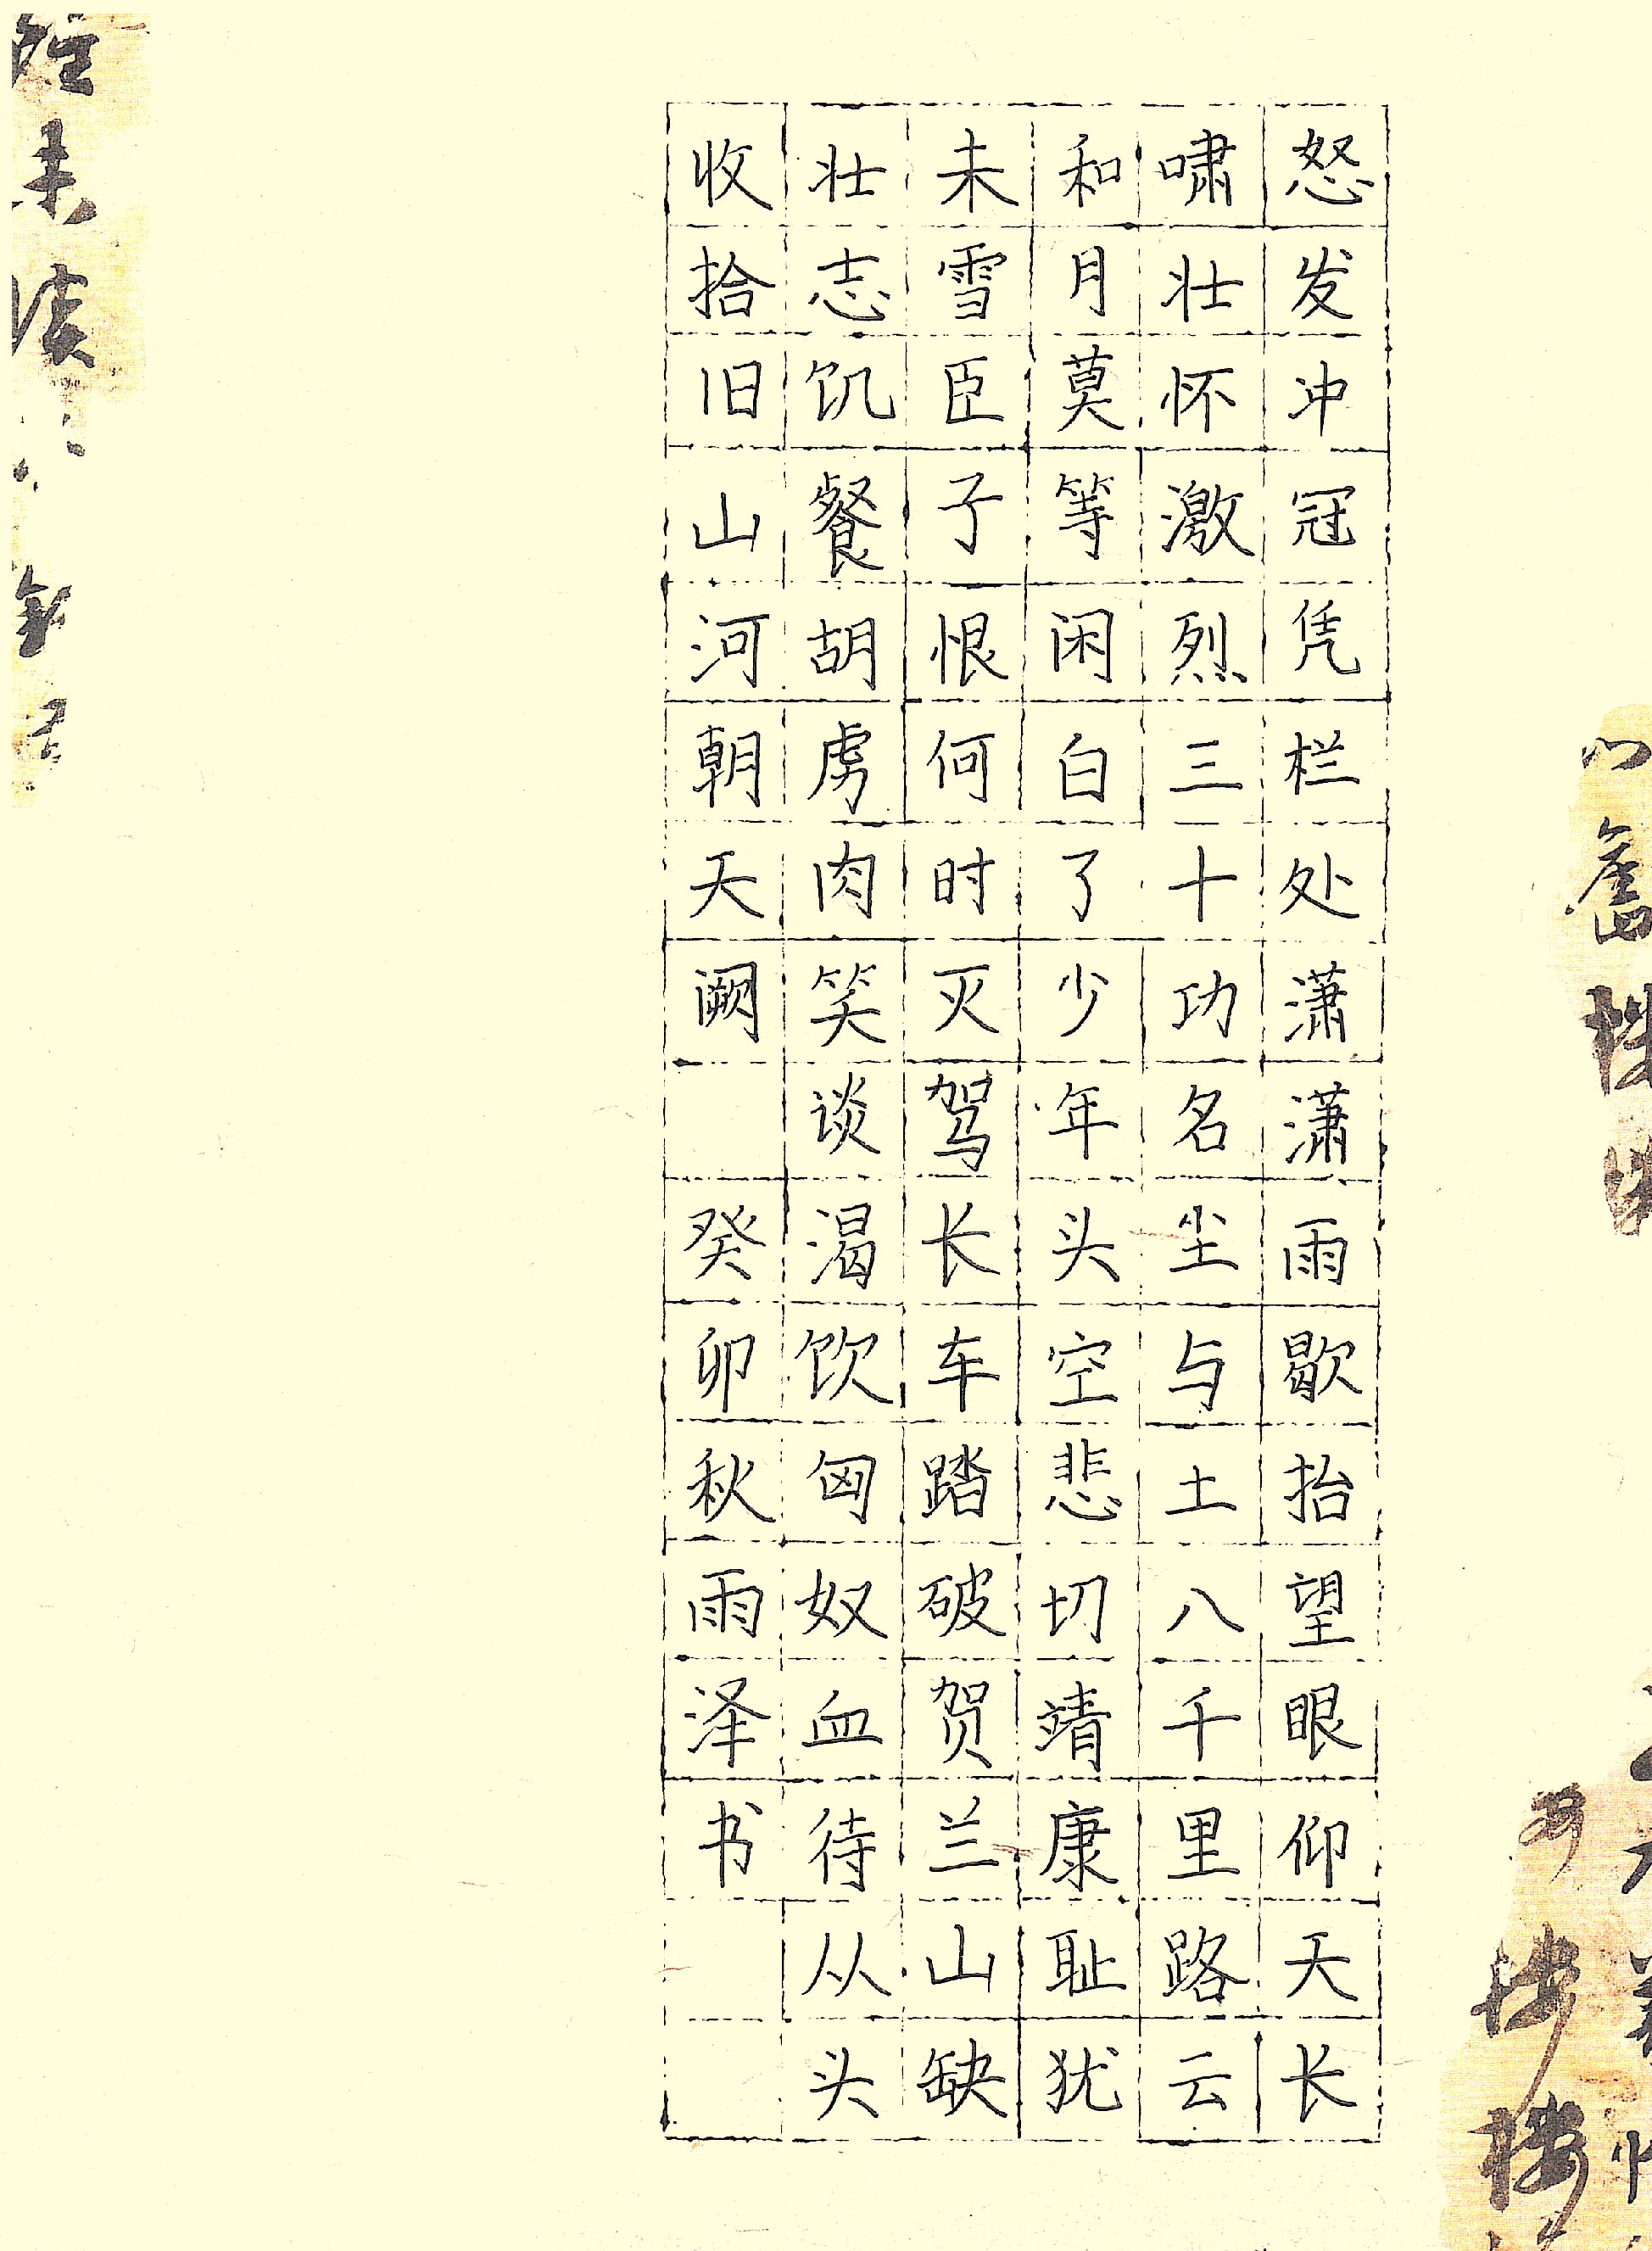 怒发冲冠凭栏处潇潇雨歇抬望眼仰天长
啸壮怀激烈三十功名尘与土八千里路云
和月莫等闲白了少年头空悲切靖康耻犹
未雪臣子恨何时灭驾长车踏破贺兰山缺
壮志饥餐胡虏肉笑谈渴饮匈奴血待从头
收拾旧山河朝天阙 癸卯秋雨泽书